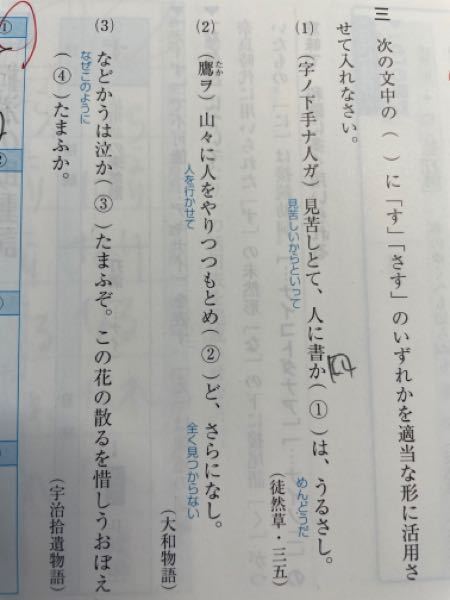 三　次の文中の（　）に「す」「さす」のいずれかを適当な形に活用さ
せて入れなさい。
(1)　（字ノ下手ナ人ガ）見苦しとて、人に書か（①）は、うるさし。
見苦しいからといって
めんどうだ
（徒然草・三五）
(2)　（鷹ヲ）山々に人をやりつつもとめ（②）ど、さらになし。
たか
人を行かせて
全く見つからない
（大和物語）
(3)　などかうは泣か（③）たまふぞ。この花の散るを惜しうおぼえ
なぜこのように
（④）たまふか。
（宇治拾遺物語）
①